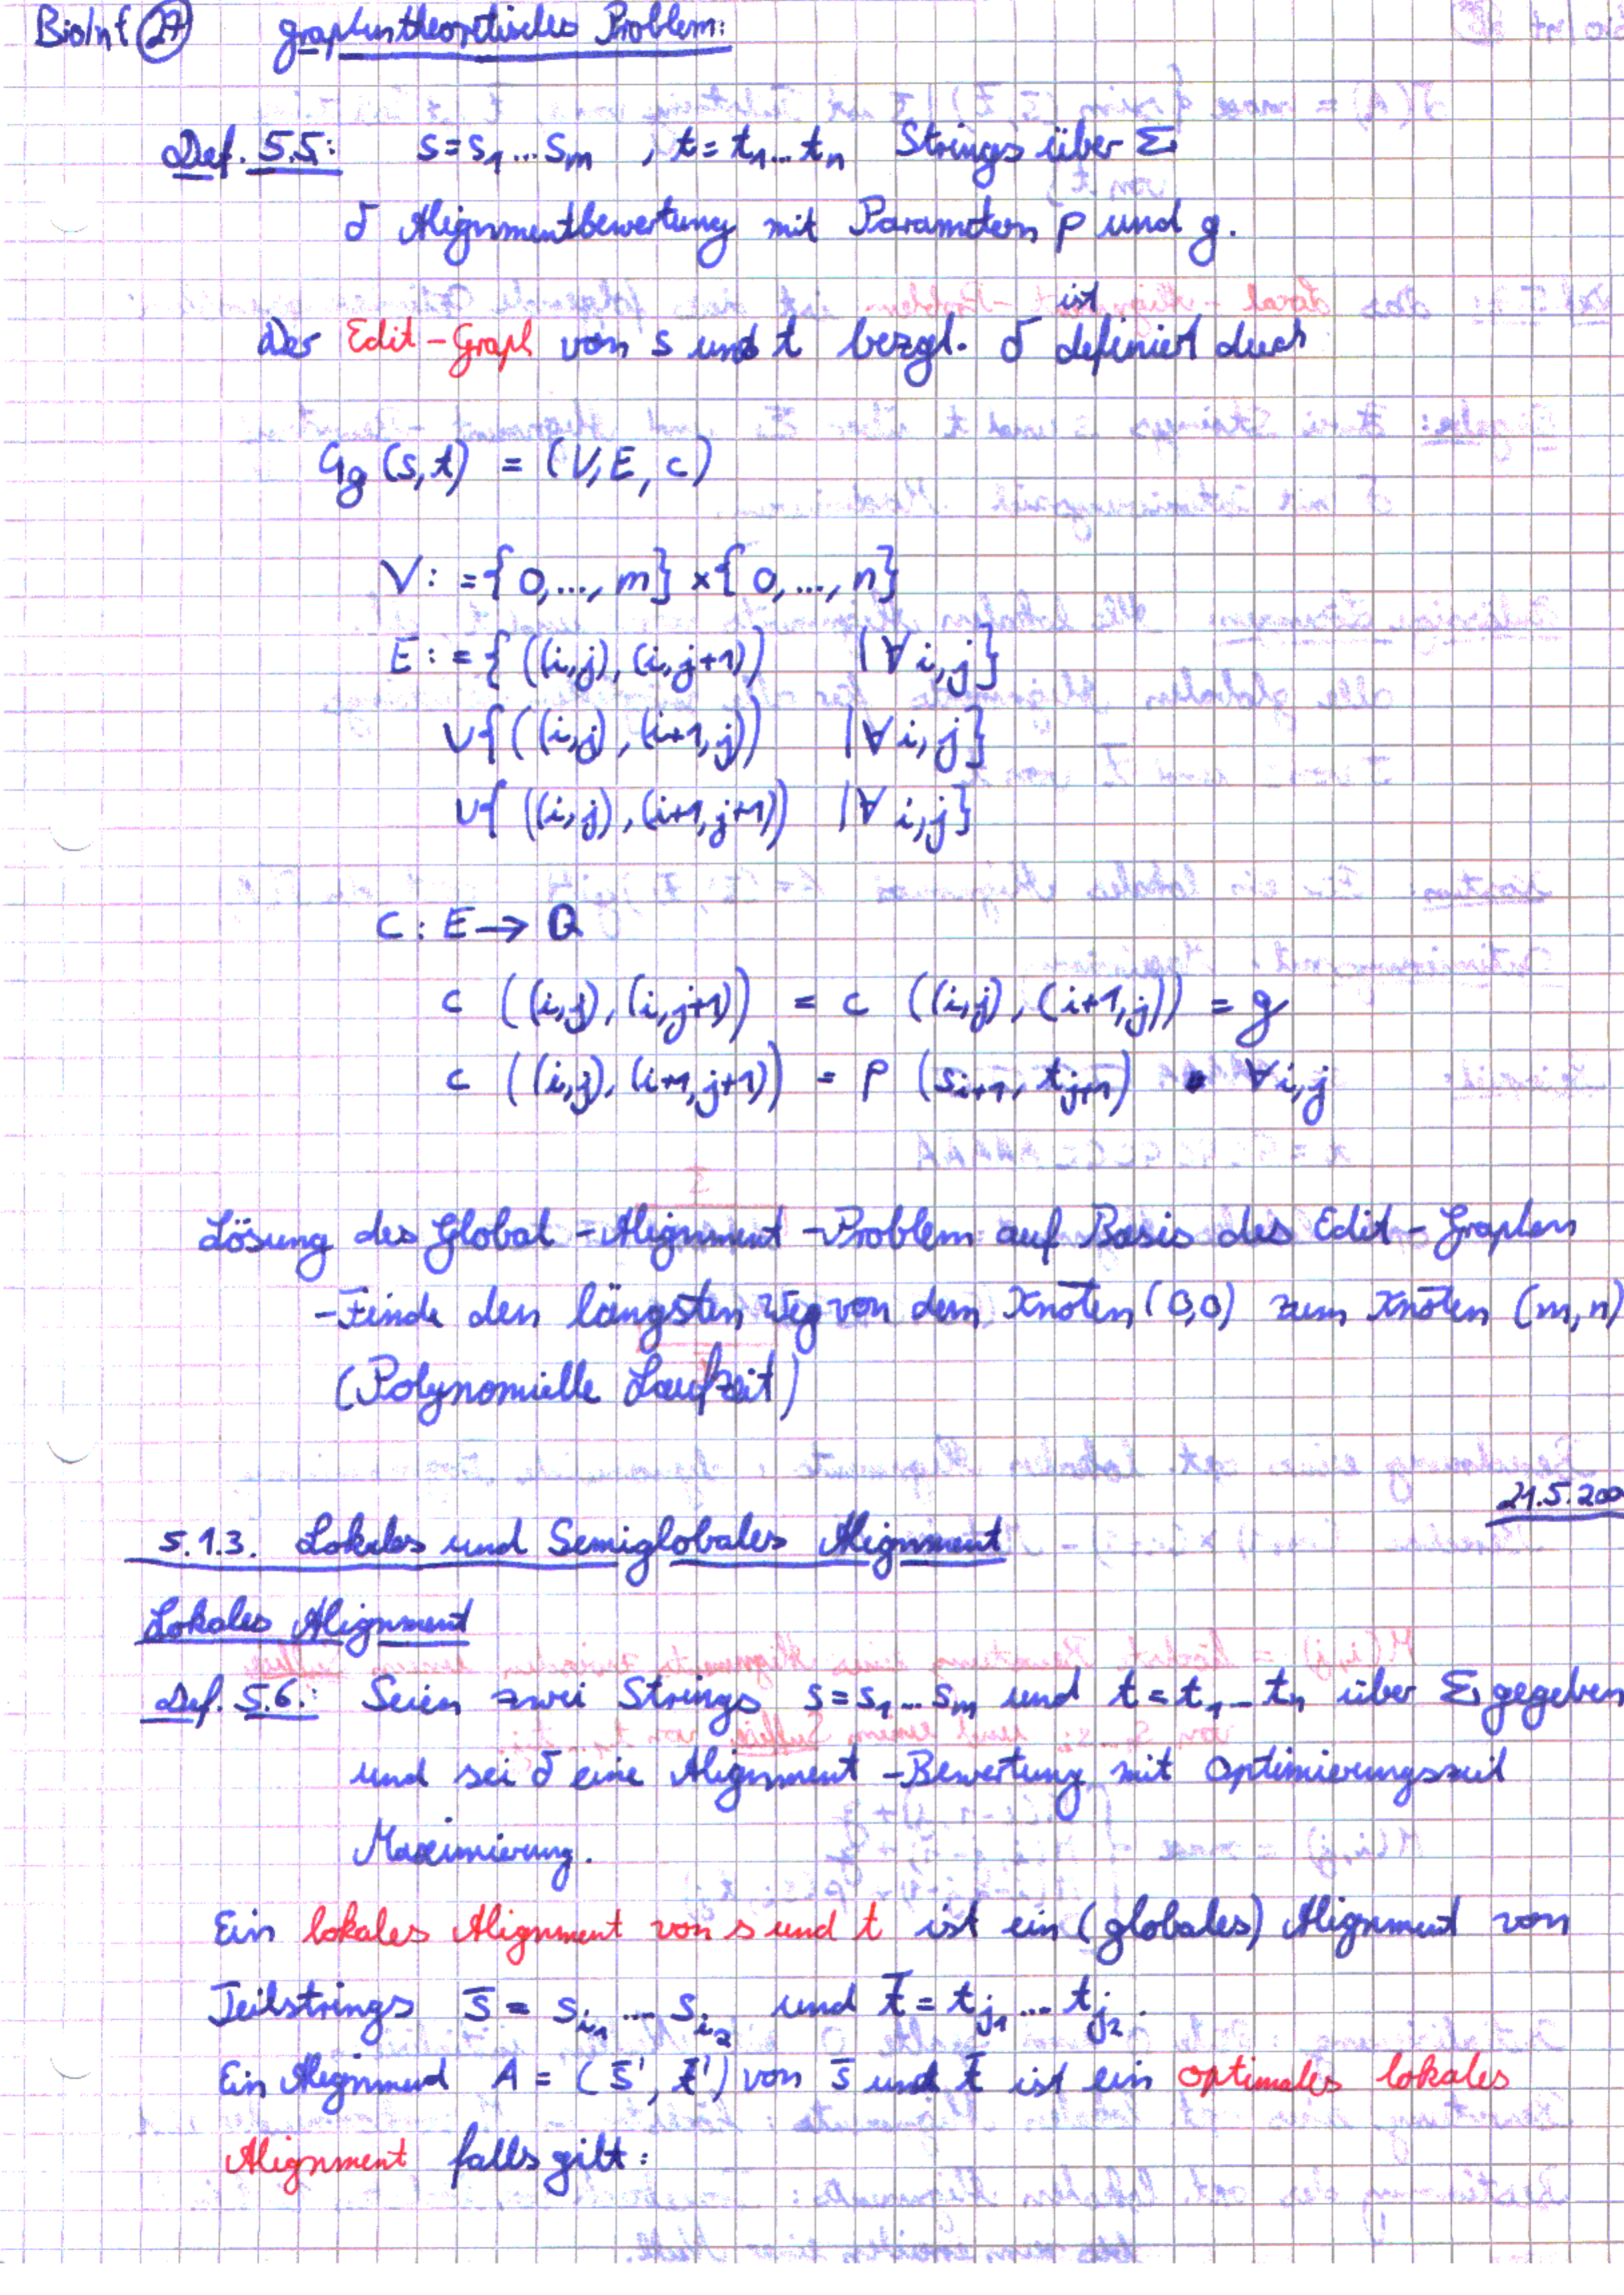 BioInf 27 graphentheoretisches Problem:
Def. 5.5: s = s₁...sₘ , t = t₁...tₙ Strings über Σ
δ Alignmentbewertung mit Parametern p und g.
ist
Der Edit-Graph von s und t bezgl. δ definiert durch
G_g (s,t) = (V, E, c)
V := {0,..., m} × {0,..., n}
E := { ((i,j), (i,j+1)) | ∀ i,j}
∪{ ((i,j), (i+1,j)) | ∀ i,j}
∪{ ((i,j), (i+1,j+1)) | ∀ i,j}
c : E → Q
c ((i,j), (i,j+1)) = c ((i,j), (i+1,j)) = g
c ((i,j), (i+1,j+1)) = p (s_{i+1}, t_{j+1}) ∀ i,j
Lösung des Global-Alignment-Problem auf Basis des Edit-Graphen
- Finde den längsten Weg von dem Knoten (0,0) zum Knoten (m,n)
(Polynomielle Laufzeit)
21.5.200
5.1.3. Lokales und Semiglobales Alignment
Lokales Alignment
Def. 5.6.: Seien zwei Strings s = s₁...sₘ und t = t₁...tₙ über Σ gegeben
und sei δ eine Alignment-Bewertung mit Optimierungsziel
Maximierung.
Ein lokales Alignment von s und t ist ein (globales) Alignment von
Teilstrings s̄ = s_{i₁}...s_{i₂} und t̄ = t_{j₁}...t_{j₂}.
Ein Alignment A = (s̄', t̄') von s̄ und t̄ ist ein optimales lokales
Alignment falls gilt: